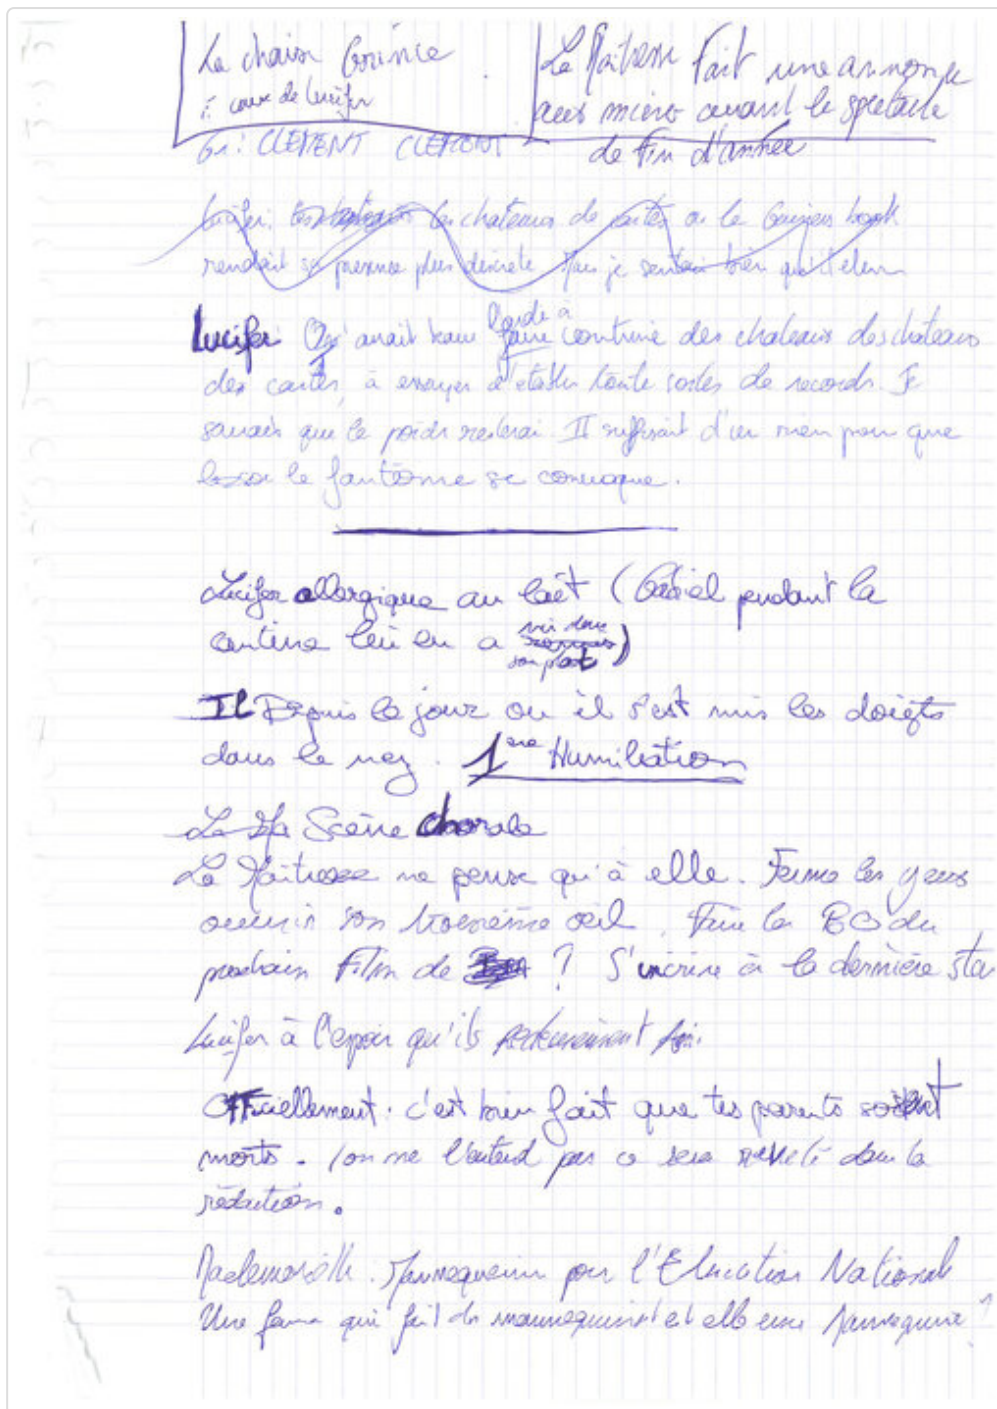 La chaise Grince
: cause de Lucifer
La Maitresse Fait une annonce
aux micro avant le spectacle
de Fin d'année
Gr: CLEMENT CLEMENT
Lucifer: les chateaux de cartes ou le Guiness book
rendait sa presence plus discrete Mais je sentais bien qu'il
Lucifer On avait beau faire construire des chateaux des chateaux
des cartes, à essayer d'etablir toute sortes de records. Je
savais que le poids resterai. Il suffisait d'un rien pour que
le fantôme se convoque.
Lucifer allergique au lait (Gabriel pendant la
cantine lui en a mis dans
son plat)
Il Depuis le jour ou il s'est mis les doigts
dans le nez. 1ere Humiliation
La Scène chorale
La Maitresse ne pense qu'à elle. Ferme les yeux
ouvrir son troisième oeil. Fair la BO du
prochain Film de ? S'incrire à la dernière star
Lucifer à l'espoir qu'ils
Officiellement: c'est bien fait que tes parents soient
morts. (on ne l'entend pas ce sera révélé dans la
rédaction.
Mademoiselle. Mannequin pour l'Education National
Une femme qui fait du mannequinat est elle une Mannequine?